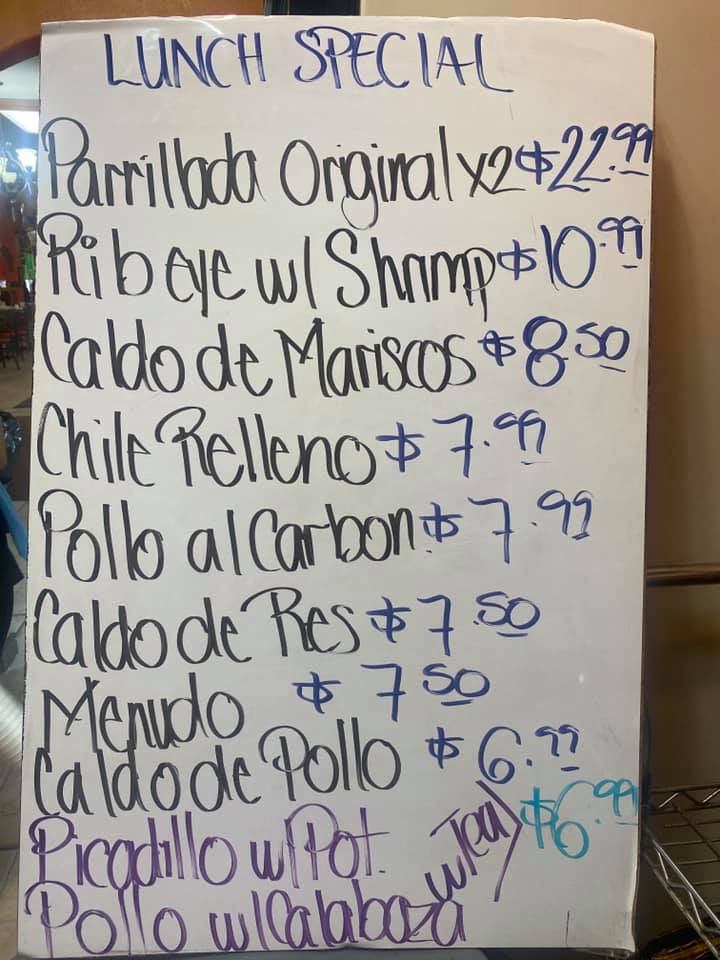 LUNCH SPECIAL
Parrillada Original x2 $22.99
Ribeye w/ Shrimp $10.99
Caldo de Mariscos $8.50
Chile Relleno $7.99
Pollo al Carbon $7.99
Caldo de Res $7.50
Menudo $7.50
Caldo de Pollo $6.99
Picadillo w/ Pot. w/Tea) $6.99
Pollo w/ Calabaza